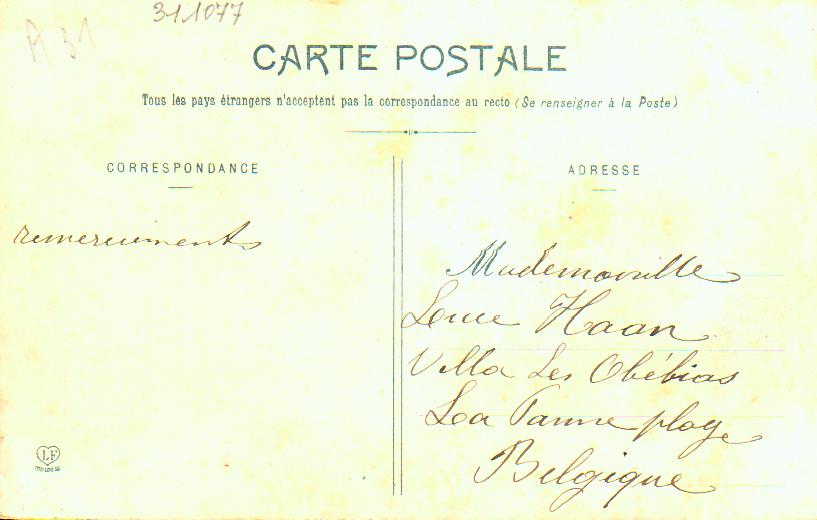 311077
A 31
CARTE POSTALE
Tous les pays étrangers n'acceptent pas la correspondance au recto (Se renseigner à la Poste)
CORRESPONDANCE
ADRESSE
remerciments
Mademoiselle
Haan
Villa Les Obébias
La Panne plage
Belgique
LF
TOULOUSE